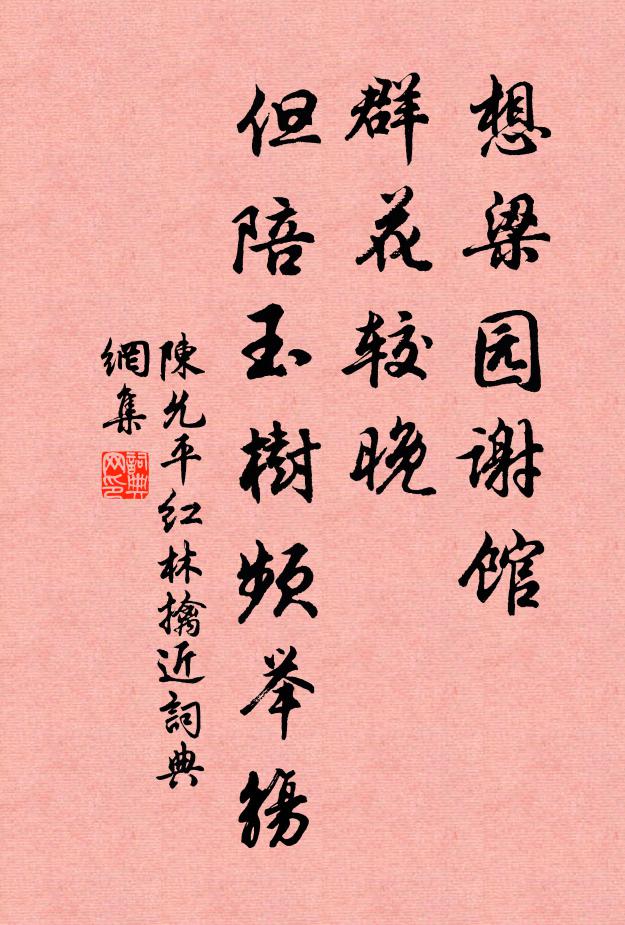 想梁园谢馆
群花较晚
但陪玉樹频举觞
陳允平红林擒近詞典
網集
詞典网印